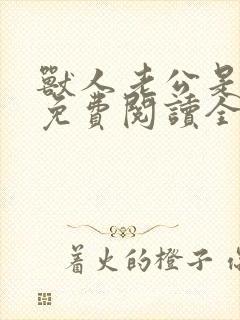 獸人老公是
免費閱讀全
著火的橙子